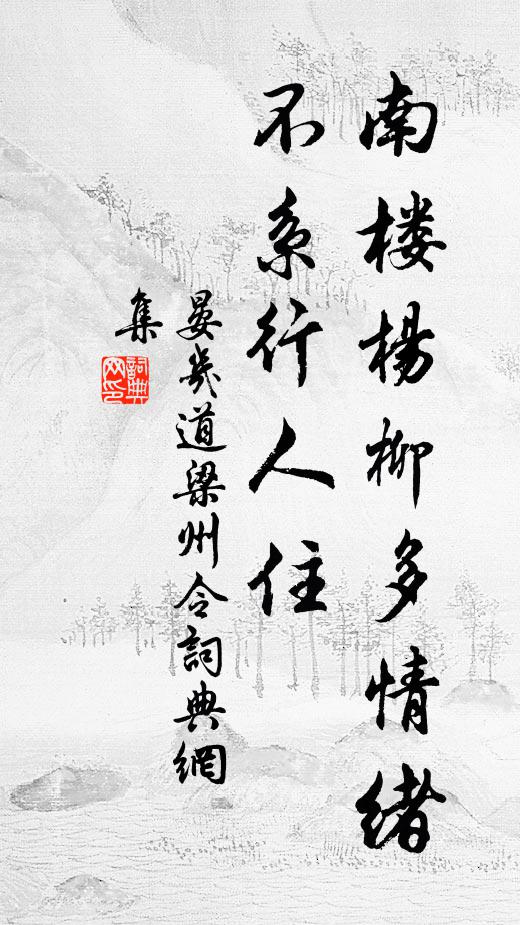 南楼楊柳多情緒
不系行人住
晏幾道梁州令詞典網
集
詞典
网印